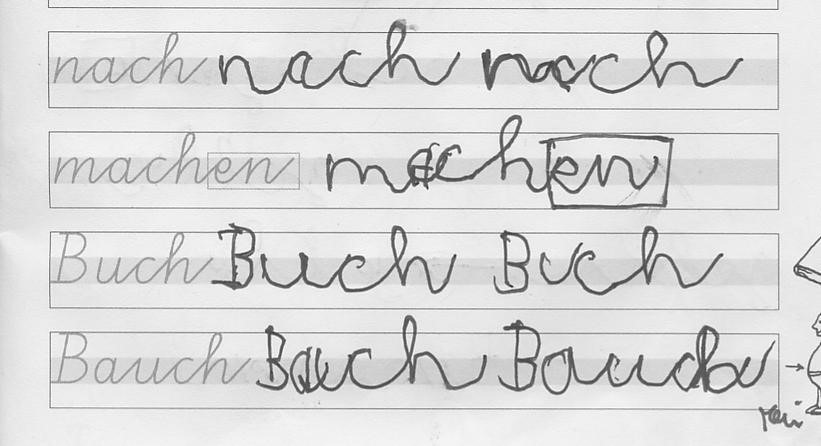 nach nach nach
machen machen
Buch Buch Buch
Bauch Bauch Bauch